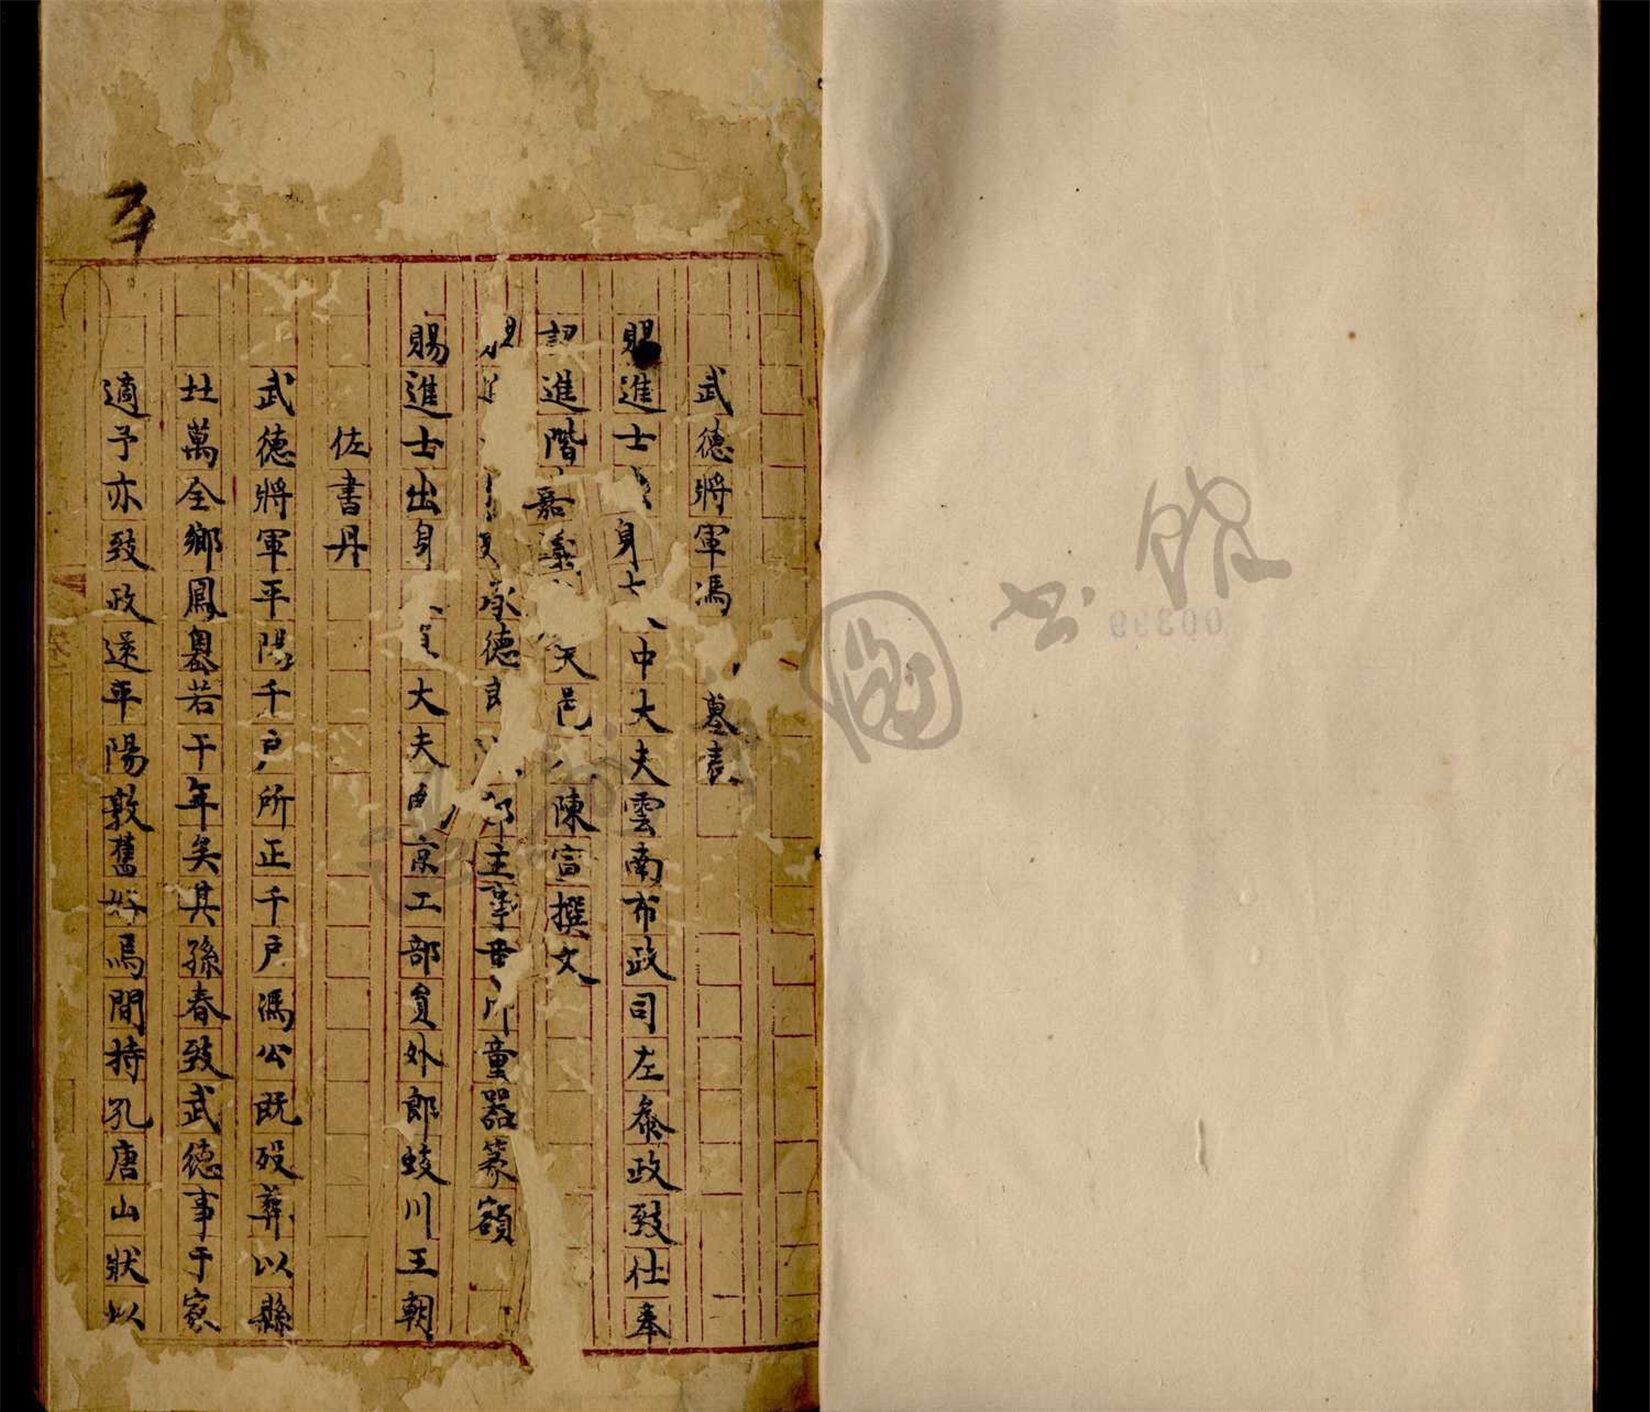 武德將軍馮墓表
賜進士身中大夫雲南布政司左叅政致仕奉
詔進階嘉議大邑陳宣撰文
承德主事童器篆額
賜進士出身大夫京工部員外郎蛟川王朝
佐書丹
武德將軍平陽千户所正千戶馮公既殁葬以縣
北萬全鄉鳳奧若干年矣其孫春致武德事于家
適予亦致政遂平陽敦舊好焉間持孔唐山狀以
圖書館
00399